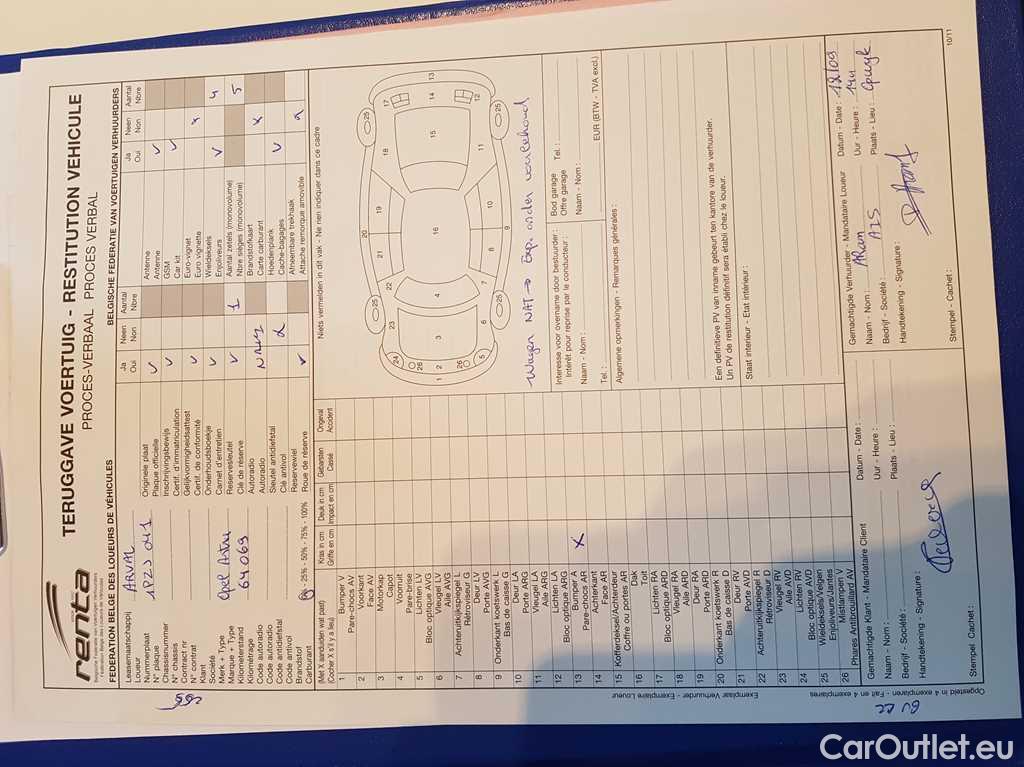 renta
Belgische Federatie van Voertuigen Verhuurders
Fédération Belge des Loueurs de Véhicules
TERUGGAVE VOERTUIG - RESTITUTION VEHICULE
PROCES-VERBAAL PROCES VERBAL
FEDERATION BELGE DES LOUEURS DE VÉHICULES
BELGISCHE FEDERATIE VAN VOERTUIGEN VERHUURDERS
Leasemaatschappij ARVAL
Loueur
Nummerplaat
N° plaque
Chassisnummer
N° chassis
Contract nr
N° contrat
Klant
Société
Merk + Type Opel Astra
Marque + Type
Kilometerstand 64069
Kilométrage
Code autoradio
Code autoradio
Code antidiefstal
Code antivol
Brandstof - 25% - 50% - 75% - 100%
Carburant
Ja Neen Aantal
Oui Non Nbre
Originele plaat
Plaque officielle
Inschrijvingsbewijs
Certif. d'immatriculation
Gelijkvormigheidsattest
Certif. de conformité
Onderhoudsboekje
Carnet d'entretien
Reservesleutel 1
Clé de réserve
Autoradio
Autoradio
Sleutel antidiefstal
Clé antivol
Reservewiel
Roue de réserve
Ja Neen Aantal
Oui Non Nbre
Antenne
Antenne
GSM
Car kit
Euro-vignet
Euro vignette
Wieldeksels 4
Enjoliveurs
Aantal zetels (monovolume) 5
Nbre sièges (monovolume)
Brandstofkaart
Carte carburant
Hoedenplank
Cache-bagages
Afneembare trekhaak
Attache remorque amovible
(Met X aanduiden wat past) Kras in cm Deuk in cm Gebarsten Original
(Cocher X s'il y a lieu) Griffe en cm Impact en cm Cassé Accident
Niets vermelden in dit vak - Ne rien indiquer dans ce cadre
1 Bumper V
Pare-chocs AV
2 Voorkant
Face AV
3 Motorkap
Capot
4 Voorruit
Pare-brise
5 Lichten LV
Bloc optique AVG
6 Vleugel LV
Aile AVG
7 Achteruitkijkspiegel L
Rétroviseur G
8 Deur LV
Porte AVG
9 Onderkant koetswerk L
Bas de caisse G
10 Deur LA
Porte ARG
11 Vleugel LA
Aile ARG
12 Lichten LA
Bloc optique ARG
13 Bumper A X
Pare-chocs AR
14 Achterkant
Face AR
15 Kofferdeksel/Achterdeur
Coffre ou portes AR
16 Dak
Toit
17 Lichten RA
Bloc optique ARD
18 Vleugel RA
Aile ARD
19 Deur RA
Porte ARD
20 Onderkant koetswerk R
Bas de caisse D
21 Deur RV
Porte AVD
22 Achteruitkijkspiegel R
Rétroviseur D
23 Vleugel RV
Aile AVD
24 Lichten RV
Bloc optique AVD
25 Wieldeksels/Velgen
Enjoliveurs/Jantes
26 Mistlampen V
Phares Antibrouillard AV
Wagen NAT → Exp. onder voorbehoud
Interesse voor overname door bestuurder :
Intérêt pour reprise par le conducteur :
Naam - Nom :
Tel. :
Bod garage Tel. :
Offre garage
Naam - Nom :
EUR (BTW - TVA excl.)
Algemene opmerkingen - Remarques générales :
Een definitieve PV van inname gebeurt ten kantore van de verhuurder.
Un PV de restitution définitif sera établi chez le loueur.
Staat interieur - Etat intérieur :
Gemachtigde Klant - Mandataire Client
Naam - Nom :
Bedrijf - Société :
Handtekening - Signature :
Stempel - Cachet :
Datum - Date :
Uur - Heure :
Plaats - Lieu :
Gemachtigde Verhuurder - Mandataire Loueur
Naam - Nom : ARam
Bedrijf - Société : AIS
Handtekening - Signature :
Stempel - Cachet :
Datum - Date : 12/09
Uur - Heure :
Plaats - Lieu :
Exemplaar Verhuurder - Exemplaire Loueur
Opgesteld in 4 exemplaren - Fait en 4 exemplaires
10/11
CarOutlet.eu